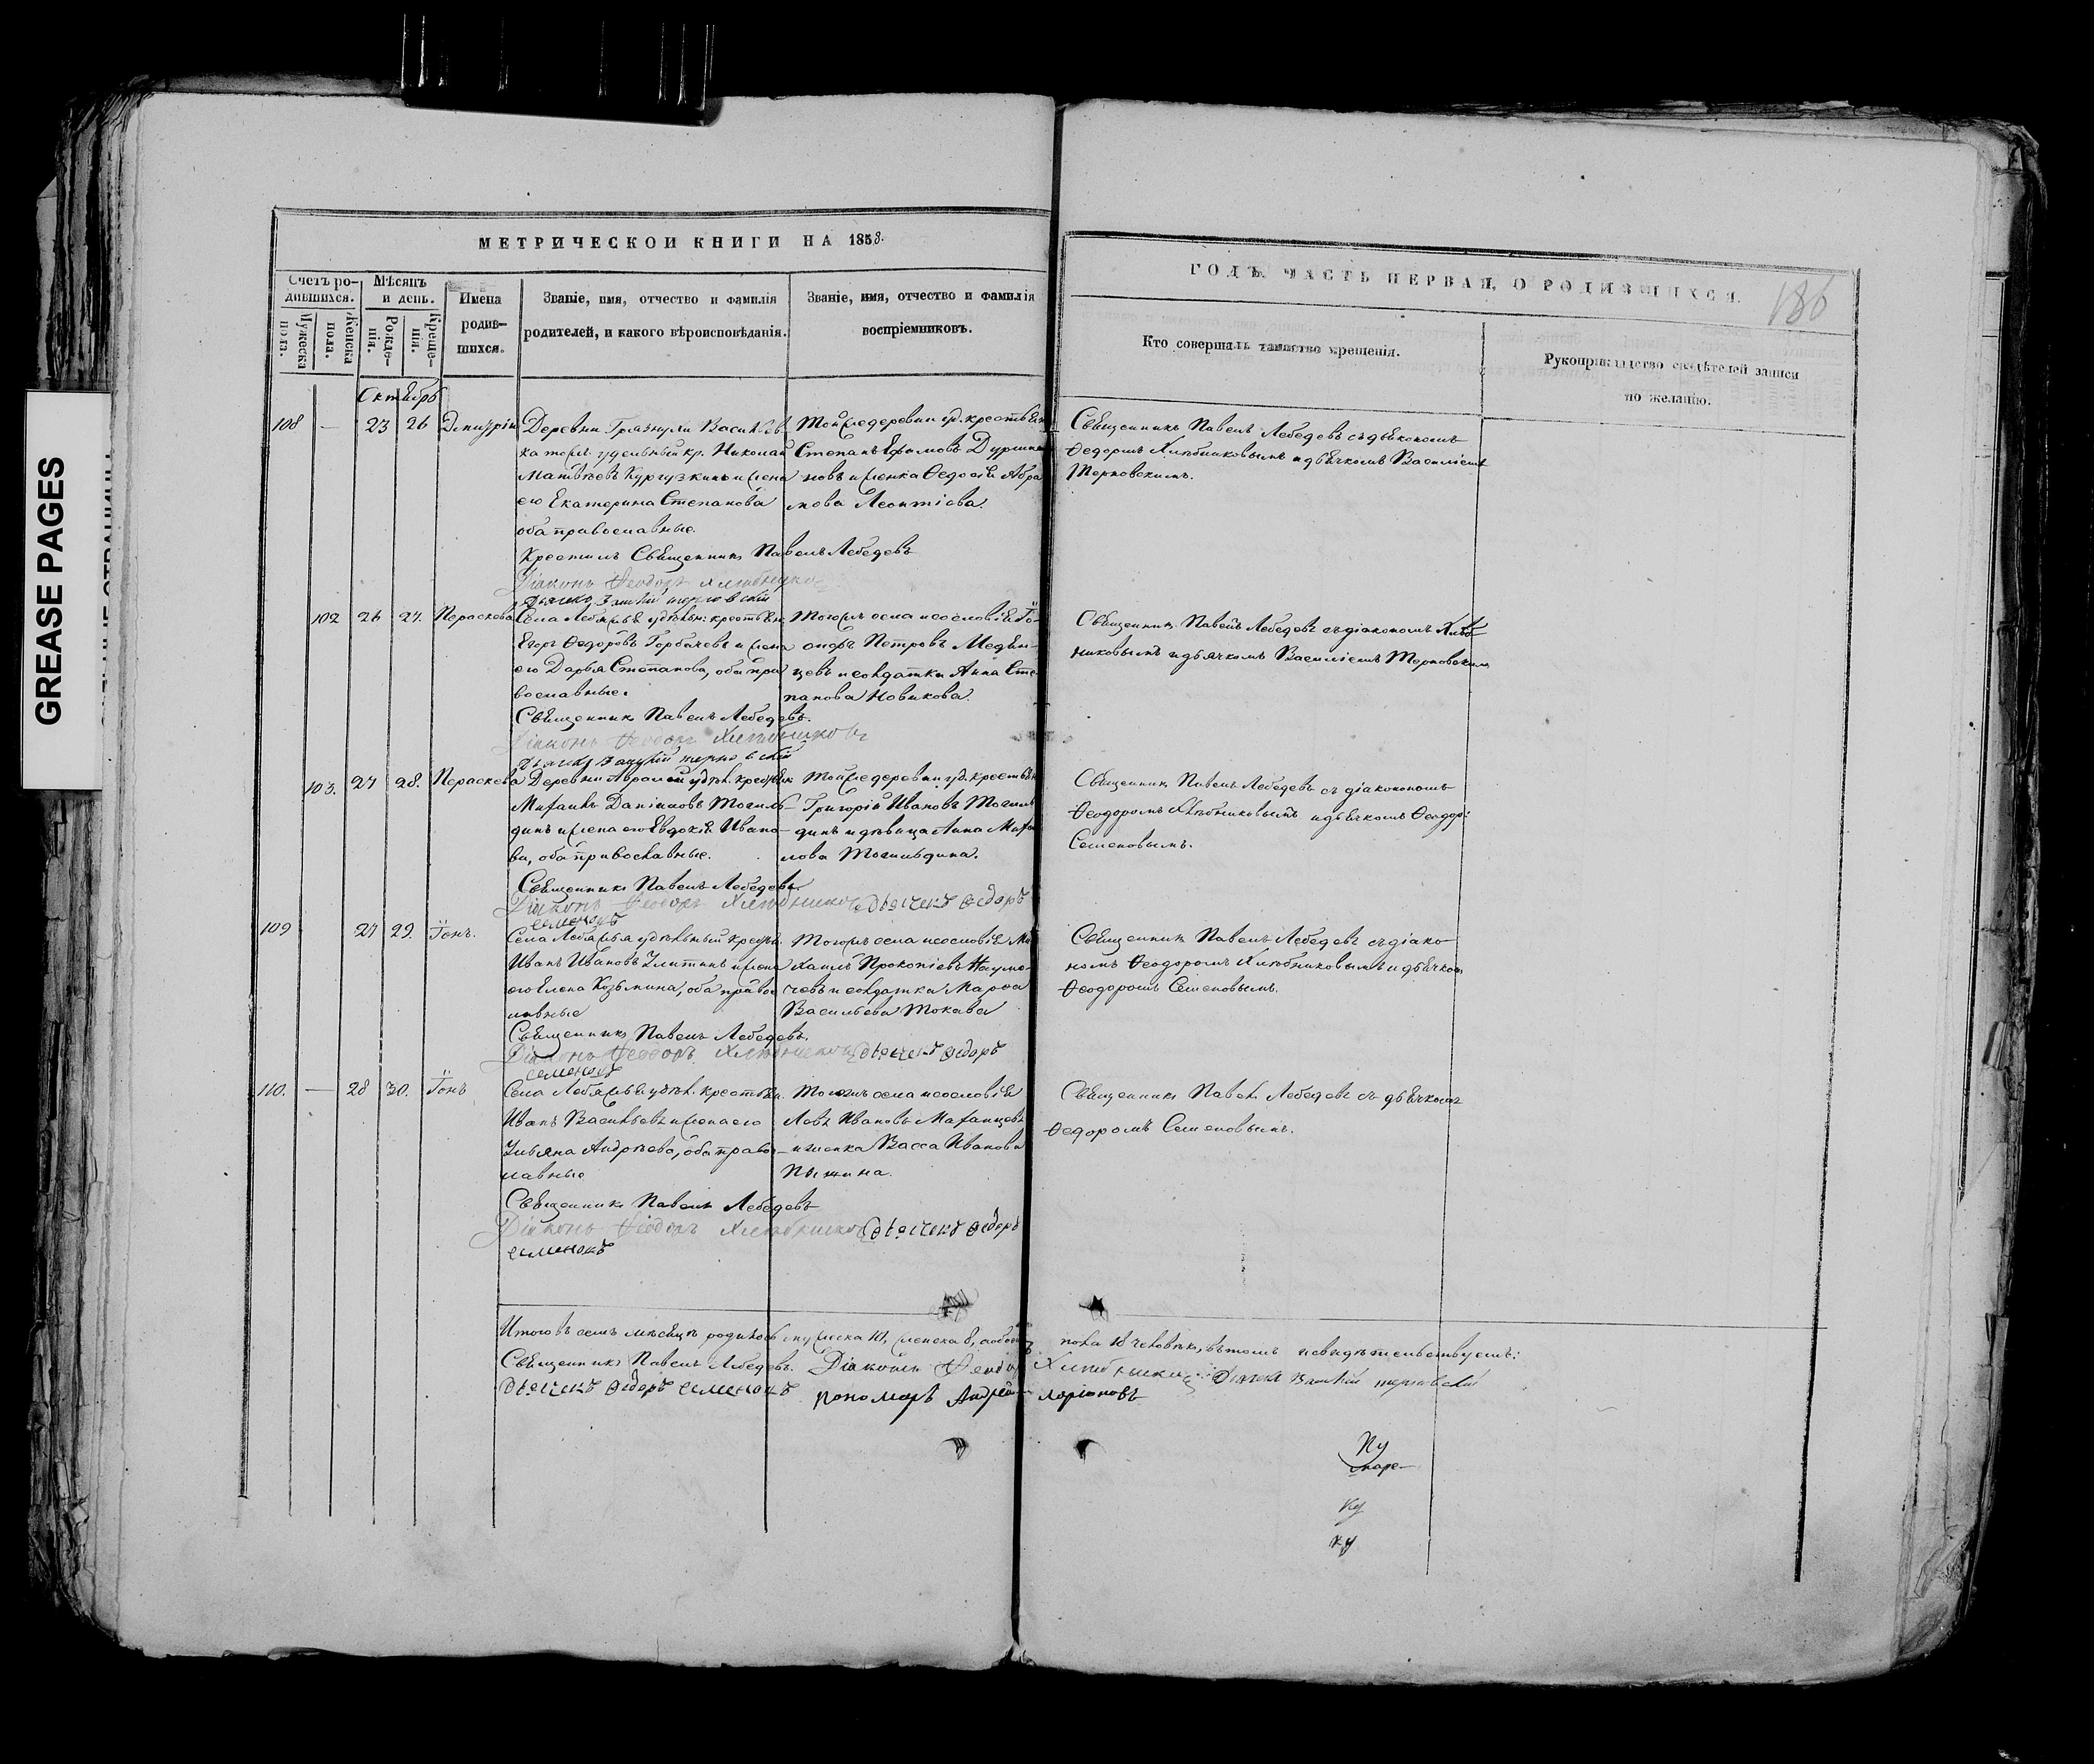 GREASE PAGES
МЕТРИЧЕСКОЙ КНИГИ НА 1858.
ГОДЪ, ЧАСТЬ ПЕРВАЯ, О РОДИВШИХСЯ.
186
Счетъ ро-
дившихся.
Мужеска
пола.
Женска
пола.
Мѣсяцъ
и день.
Рожде-
нія.
Креще-
нія.
Имена
родив-
шихся.
Званіе, имя, отчество и фамилія
родителей, и какого вѣроисповѣданія.
Званіе, имя, отчество и фамилія
воспріемниковъ.
Кто совершалъ таинство крещенія.
Рукоприкладство свидѣтелей записи
по желанію.
Октябрь
108 — 23 26 Димитрій
Деревни Грязнухи
удельный кр. Николай
Матвѣевъ Кургузкинъ и жена
его Екатерина Степанова
оба православные.
Крестилъ Священникъ Павелъ Лебедевъ
Діаконъ Ѳеодоръ Хлебников
Той же деревни уд. крестьян
Степанъ
и женка Ѳедосья Абра
мова Леонтіева.
Священникъ Павелъ Лебедевъ съ дьякономъ
Ѳедоромъ Хлѣбниковымъ и дьячкомъ Василіемъ
Терновскимъ.
102 26 27. Параскева
Села Лебяжья удѣльн: крестьян
Егоръ Ѳедоровъ Горбачевъ и жена
его Дарья Степанова, оба пра
вославные.
Священникъ Павелъ Лебедевъ.
Діаконъ Ѳеодоръ Хлебниковъ
Тогожъ села и сословія
Петровъ
цевъ и солдатка Анна Сте
панова Новикова.
Священникъ Павелъ Лебедевъ съ діакономъ Хлѣб
никовымъ и дьячкомъ Василіемъ Терновскимъ
103. 27 28. Параскева
Деревни удѣл. крестьян
Михаилъ Даніиловъ Могиль-
динъ и жена его Евдокія Ивано-
ва, оба православные.
Священникъ Павелъ Лебедевъ.
Діаконъ Ѳеодоръ Хлебниковъ дьячекъ Ѳедоръ
семеновъ
Той же деревни уд. крестьян
Григорій Ивановъ Могиль
динъ и дѣвица Анна Михаи
лова Могильдина.
Священникъ Павелъ Лебедевъ съ діакономъ
Ѳеодоромъ Хлѣбниковымъ и дьячкомъ Ѳеодор:
Семеновымъ.
109 27 29. Іонъ.
Села Лебяжья удѣльный крестьян.
Иванъ Ивановъ и жена
его Елена Козьмина, оба правос
лавные
Священникъ Павелъ Лебедевъ.
Діаконъ Ѳеодоръ Хлебниковъ дьячекъ Ѳедоръ
семеновъ
Тогожъ села и сословія Ми
хаилъ Прокопіевъ Наумо-
чевъ и солдатка Марѳа
Васильева Токава
Священникъ Павелъ Лебедевъ съ діако-
номъ Ѳеодоромъ Хлѣбниковымъ и дьячком
Ѳеодоромъ Семеновымъ.
110. — 28 30. Іонъ
Села Лебяжья удѣл. крестьян.
Иванъ Васильевъ и жена его
Ульяна Андреева, оба правос-
лавные
Священникъ Павелъ Лебедевъ
Діаконъ Ѳеодоръ Хлебниковъ дьячекъ Ѳедоръ
семеновъ
Тогожъ села и сословія
Левъ Ивановъ
и женка Васса Иванова
Священникъ Павел. Лебедевъ съ дьячкомъ
Ѳедоромъ Семеновымъ.
Итого въ семъ мѣсяцѣ родилось мужеска 10, женска 8, обоего пола 18 человѣкъ, въ томъ и свидѣтельствуемъ:
Священникъ Павелъ Лебедевъ. Діаконъ Ѳеодор Хлебниковъ. Дьячекъ Василій терновскій
дьячекъ Ѳедоръ семеновъ пономарь Андрей ларионовъ